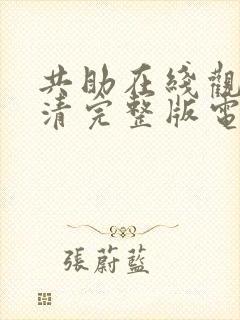 共助在綫觀
清完整版電
張蔚藍